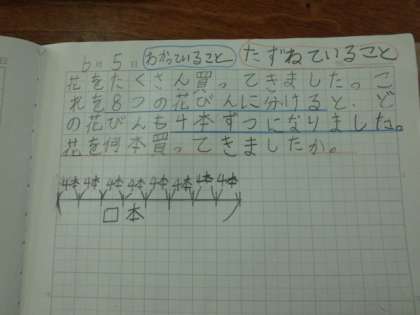 6月5日 わかっていること たずねていること
花をたくさん買ってきました。こ
れを8つの花びんに分けると、ど
の花びんも4本ずつになりました。
花を何本買ってきましたか。
4本 4本 4本 4本 4本 4本 4本 4本
□本